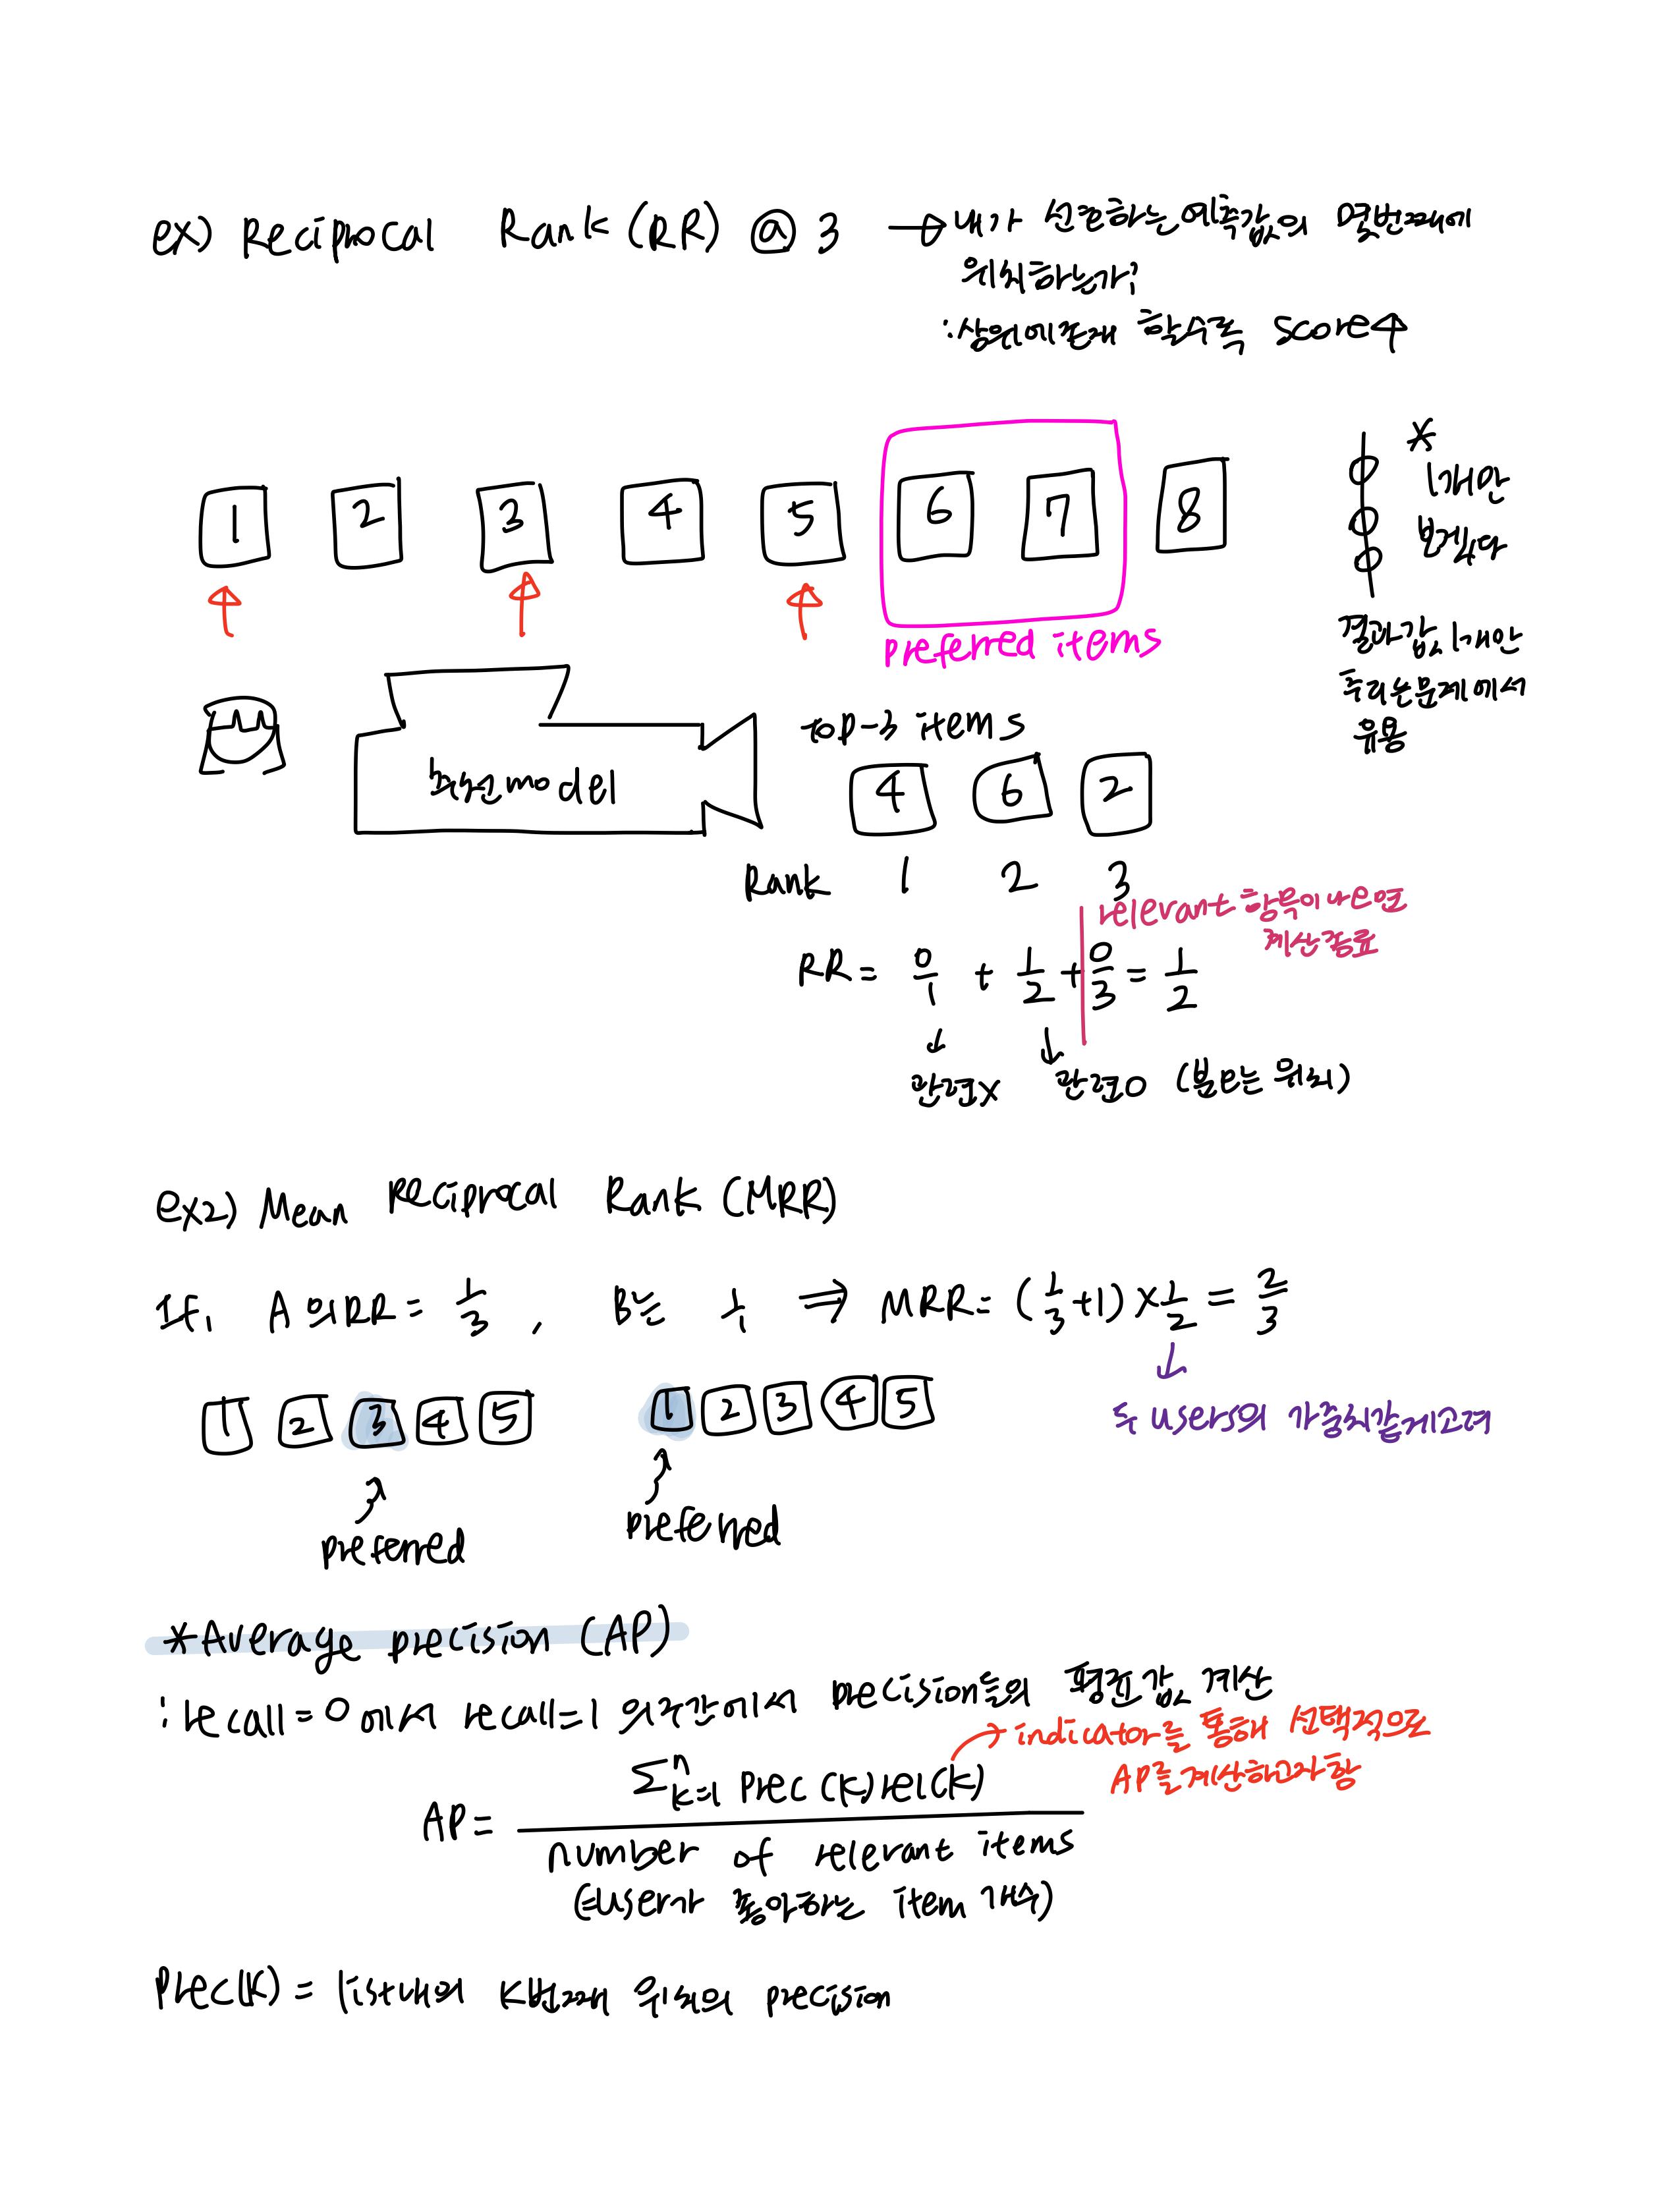 ex) Reciprocal Rank (RR) @ 3 → 내가 선호하는 예측값의 몇번째에
위치하는가?
∵상위에존재 할수록 score↑
1 2 3 4 5 6 7 8
*
1개만
보겠다
preferred items
결과값 1개만
추리는문제에서
유용
추천model
top-3 items
4 6 2
Rank 1 2 3
relevant 항목이 나오면
계산종료
RR = 0/1 + 1/2 + 0/3 = 1/2
↓ ↓
관련x 관련o (분모는 위치)
ex2) Mean Reciprocal Rank (MRR)
If, A의RR = 1/3 , B는 1/1 ⇒ MRR = (1/3+1) × 1/2 = 2/3
1 2 3 4 5 1 2 3 4 5
두 users의 가중치같게고려
preferred preferred
*Average precision (AP)
: recall=0에서 recall=1의구간에서 precision들의 평균값 계산
→ indicator를 통해 선택적으로
AP를계산하고자함
AP = Σⁿₖ₌₁ Prec(k)rel(k)
number of relevant items
(=user가 좋아하는 item 개수)
Prec(k) = list내의 k번째 위치의 precision